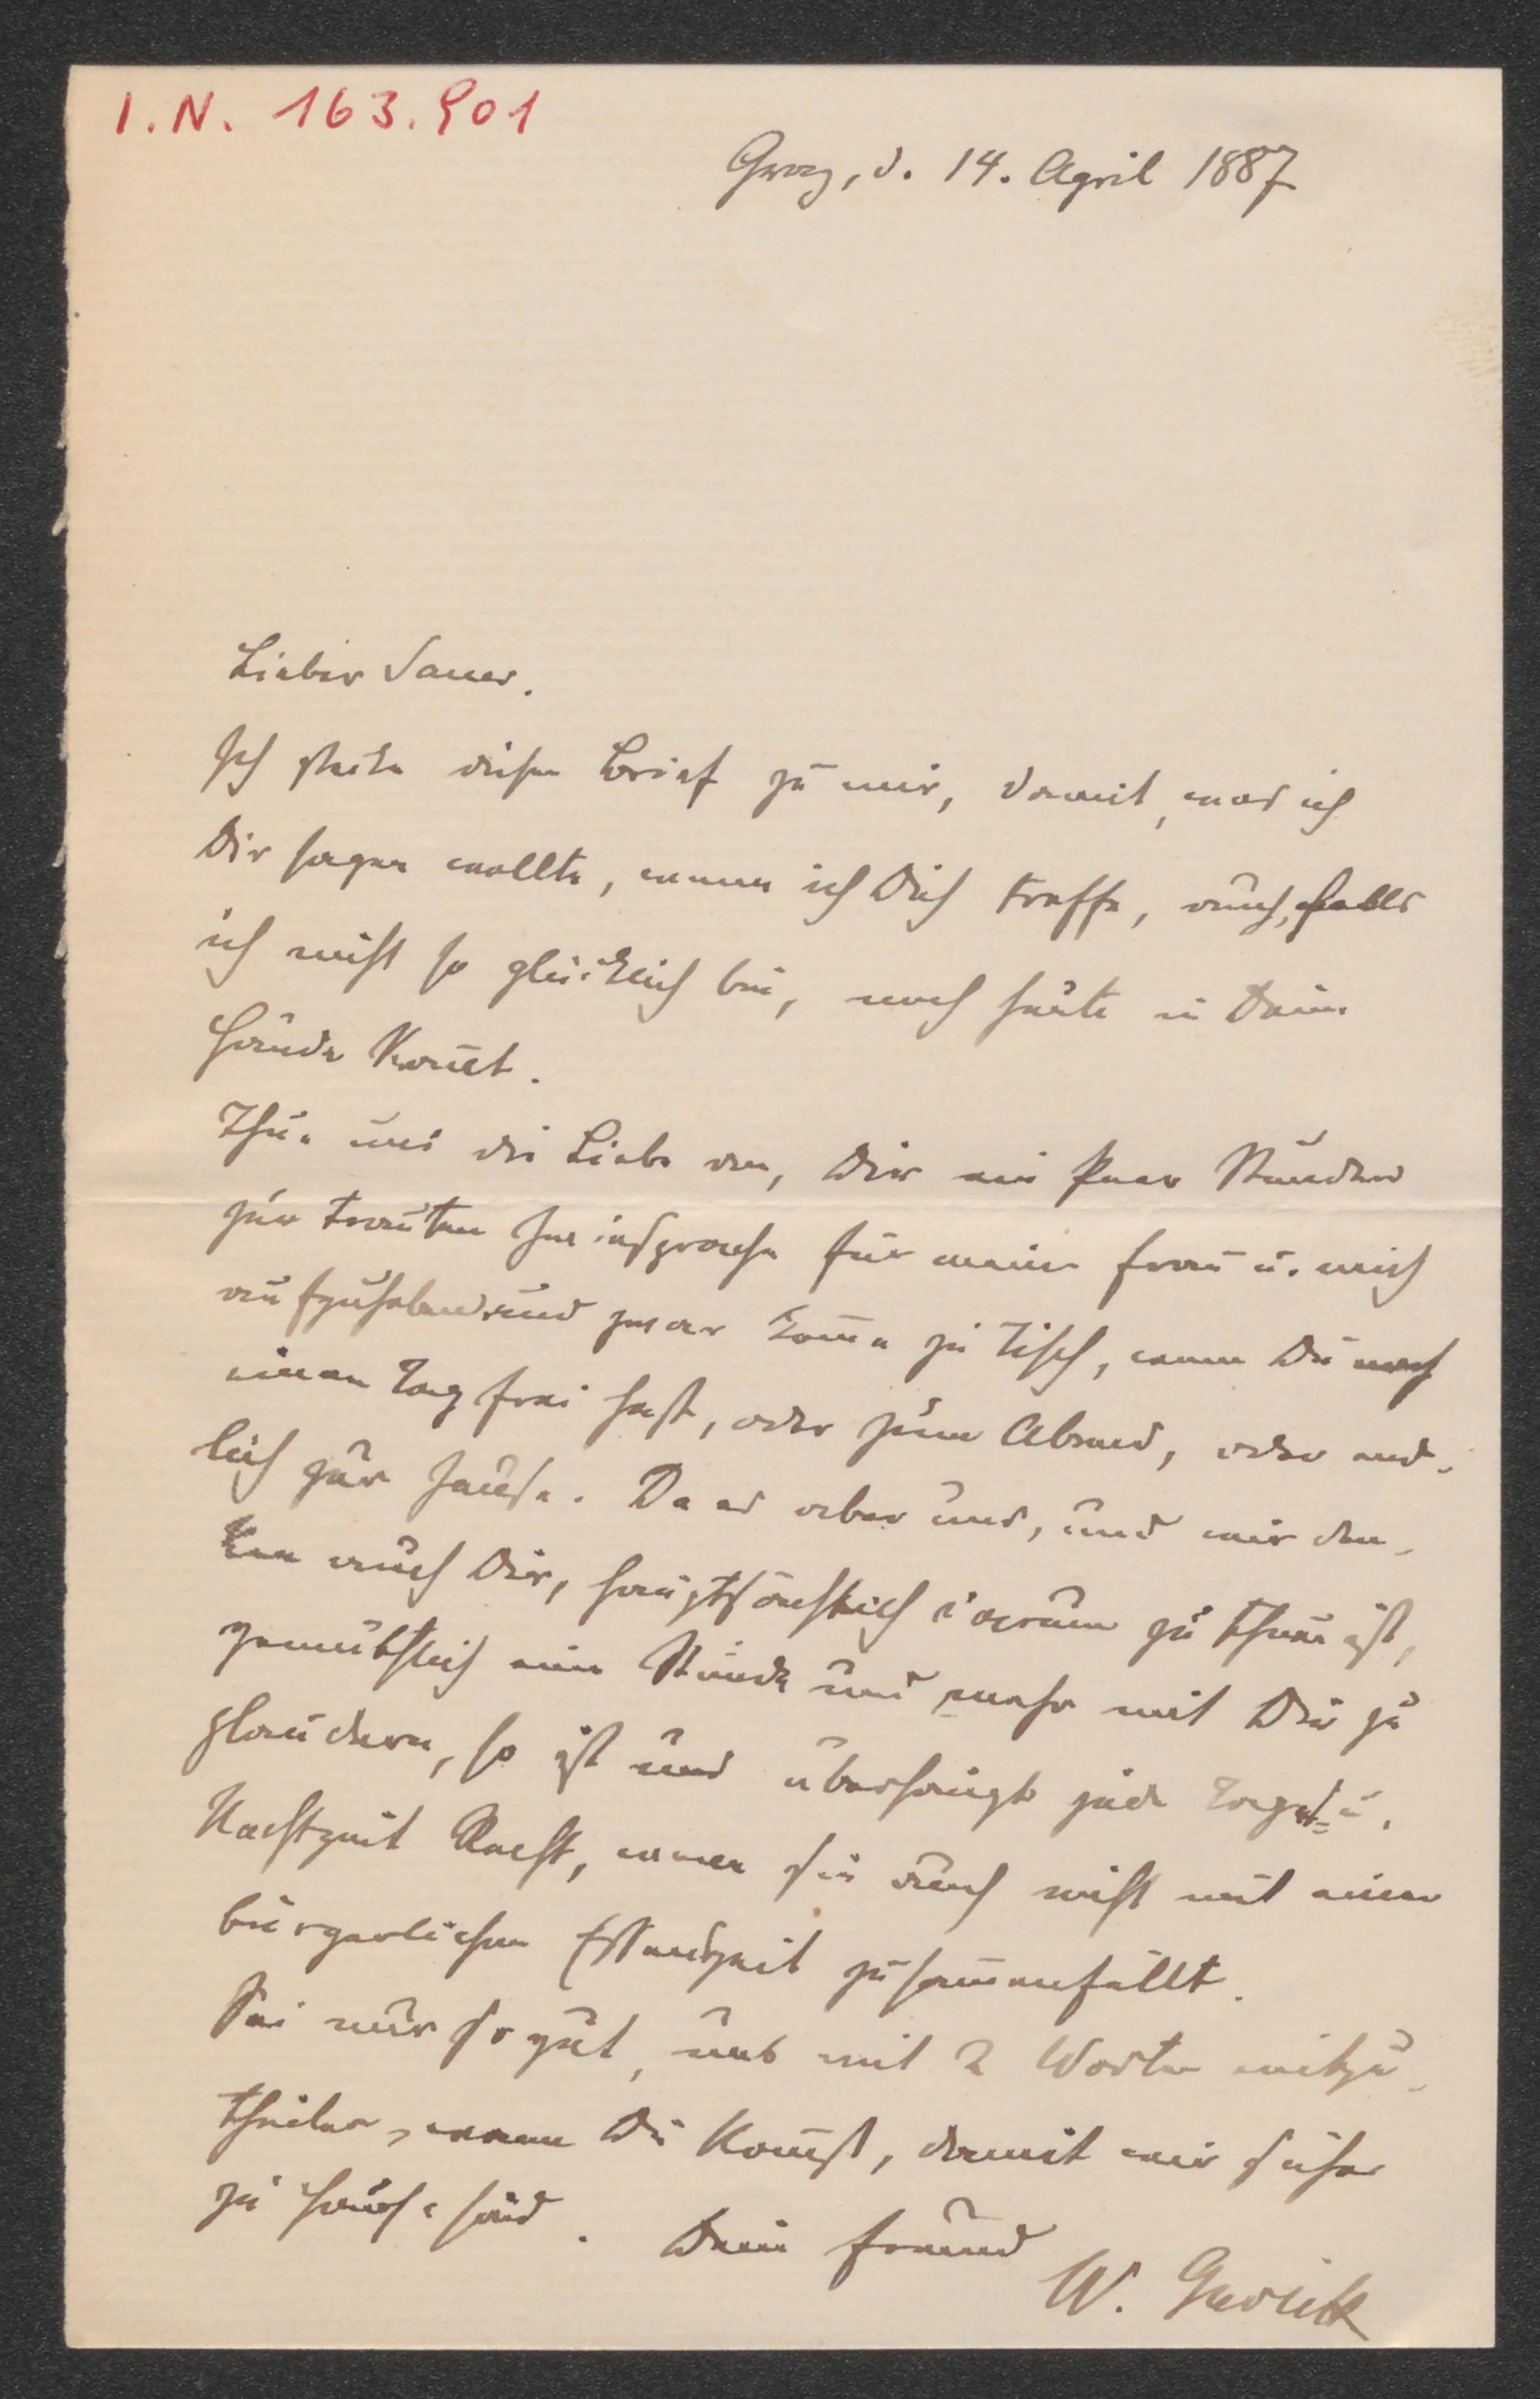 I.N. 163.901
Graz, d. 14. April 1887
Lieber Sauer.
Ich stecke diesen Brief zu mir, damit, was ich
Dir sagen wollte, wenn ich Dich treffe, auch, falls
ich nicht so glücklich bin, noch heute in Deine
Hände kom̄t.
Thue uns die Liebe an, Dir ein paar Stunden
zur trauten Zwiesprache für meine Frau u. mich
aufzuheben und zwar kom̄e zu Tisch, wenn Du noch
einen Tag frei hast, oder zum Abend, oder end-
lich zur Jause. Da es aber uns, und wir den-
ken auch Dir, hauptsächlich darum zu thun ist,
gemütlich eine Stunde und mehr mit Dir zu
plaudern, so ist uns überhaupt jede Tages- u.
Nachtzeit Recht, wenn sie auch nicht mit einer
bürgerlichen Essenszeit zusam̄enfällt.
Sei nur so gut, uns mit 2 Worten mitzu-
theilen, wann Du kom̄st, damit wir sicher
zu Hause sind. Dein Freund
W. Gurlitt